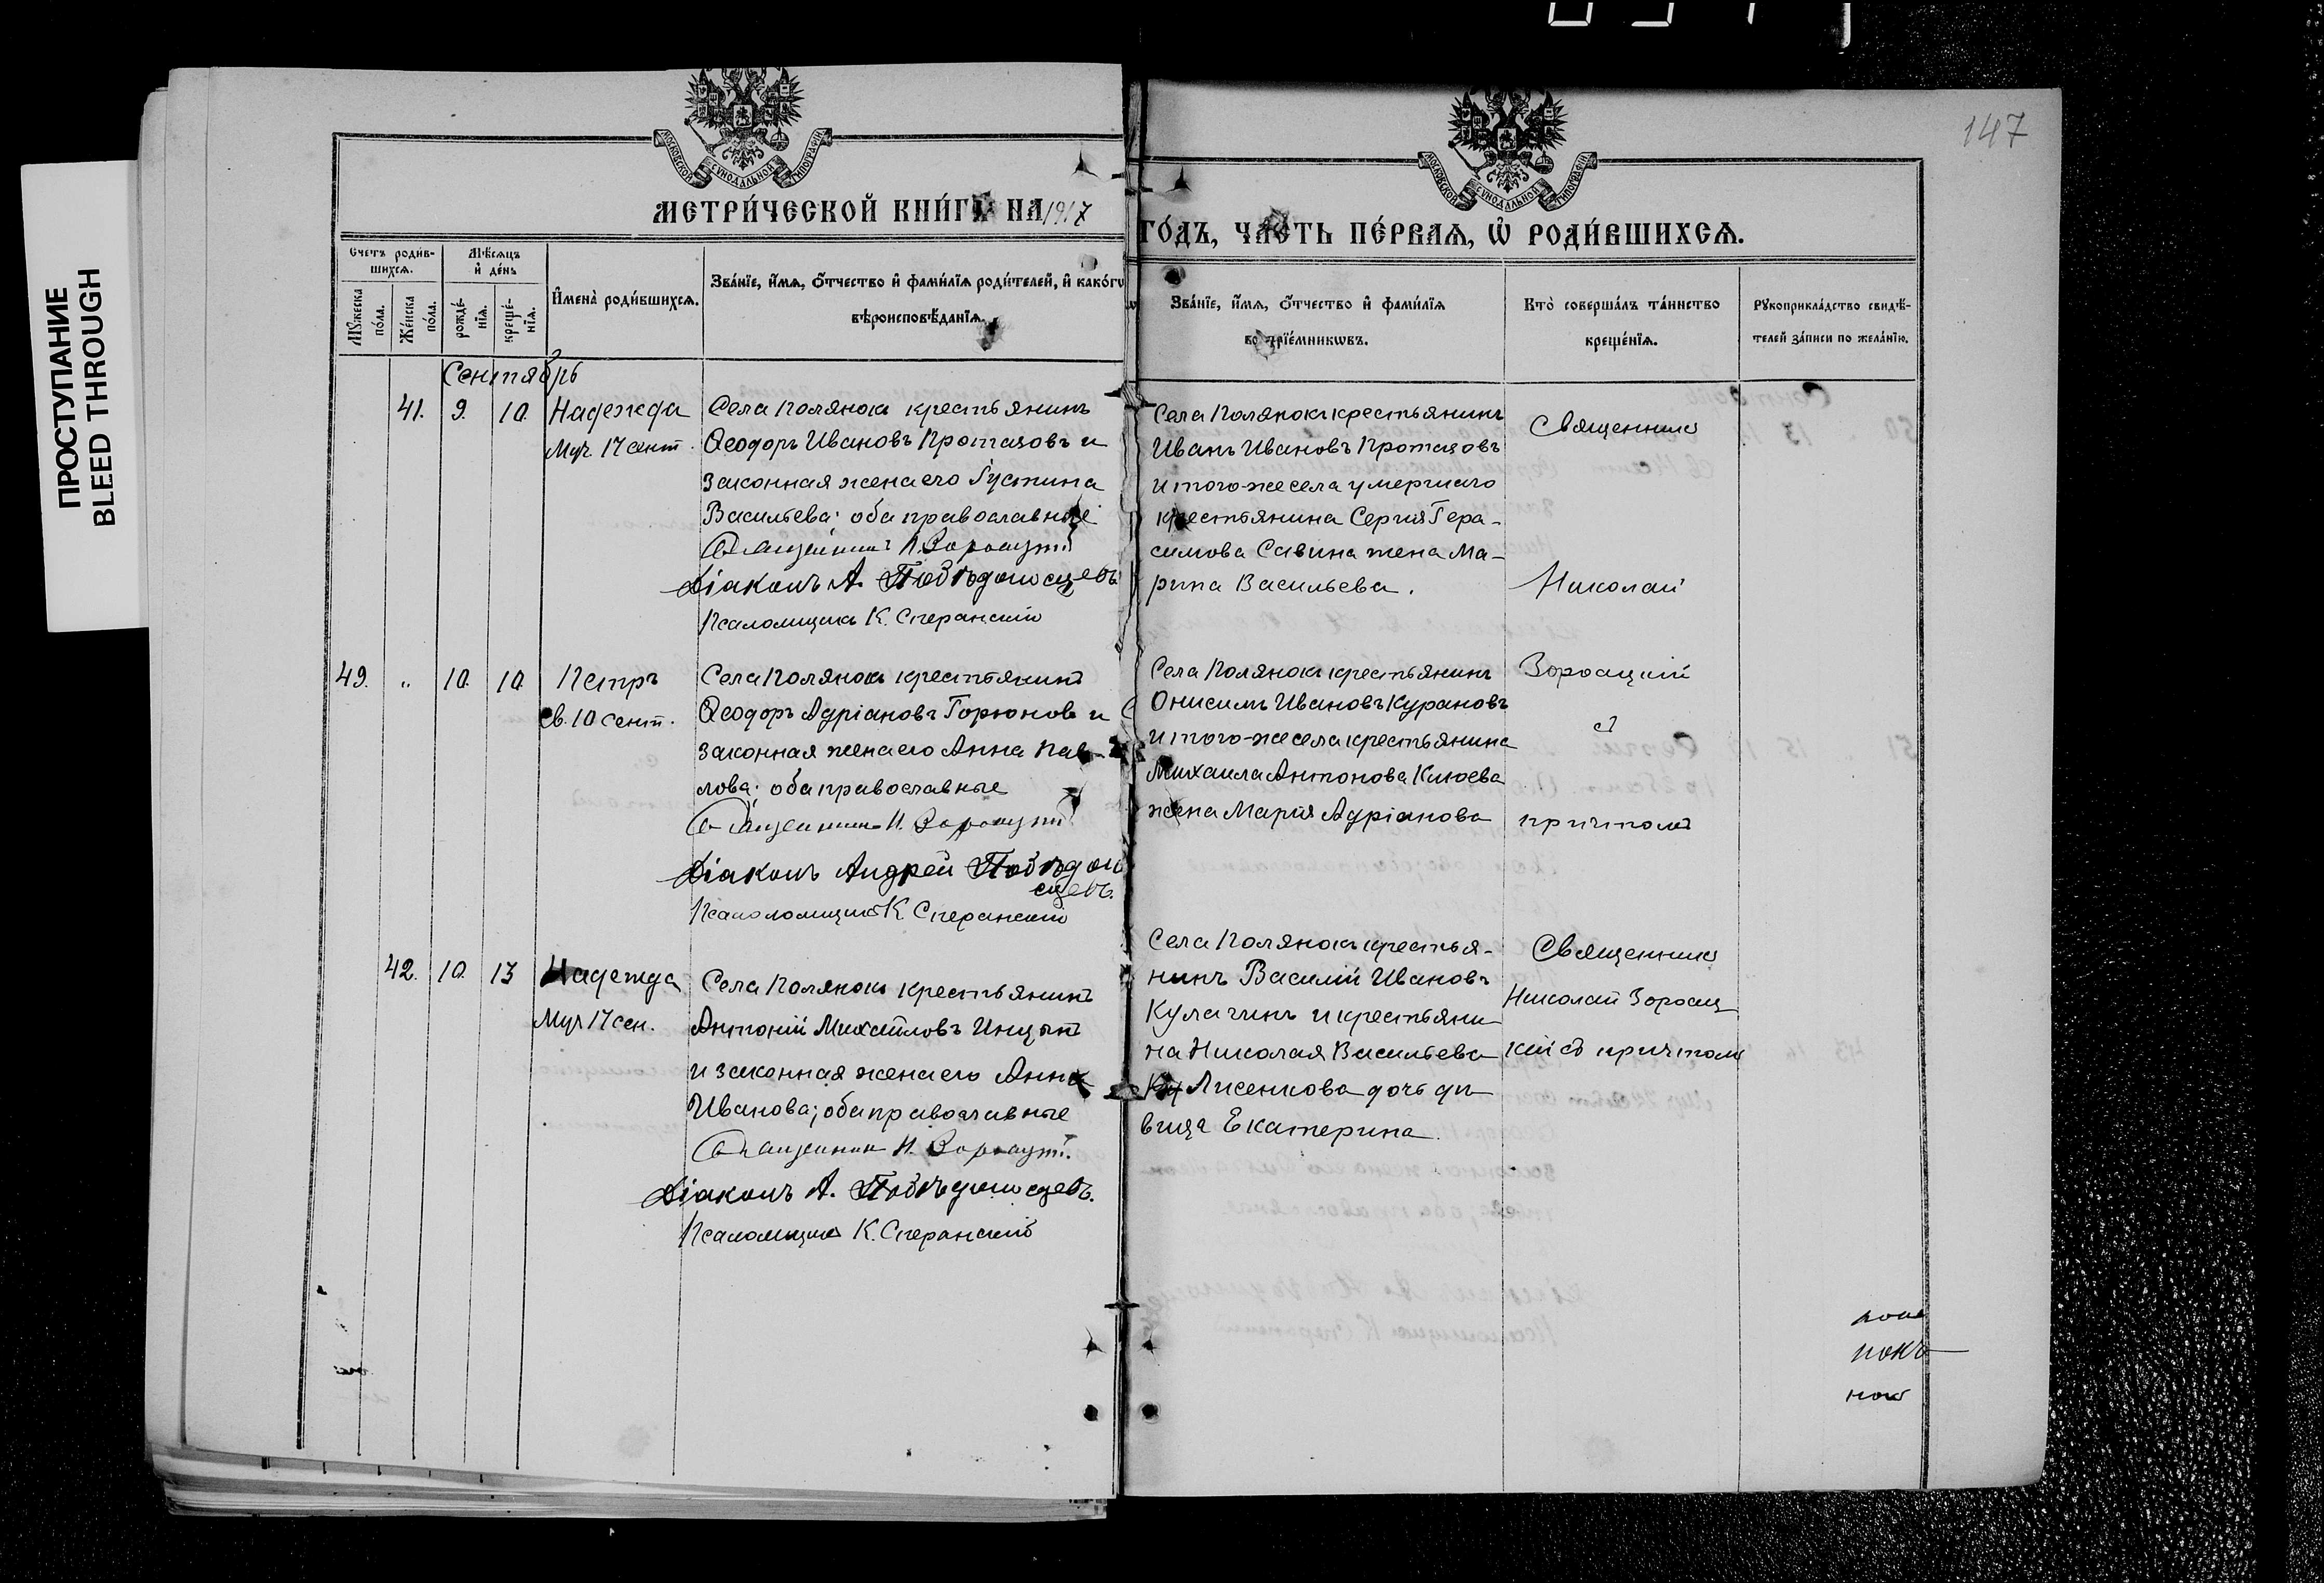 ПРОСТУПАНИЕ
BLEED THROUGH
147
МОСКОВСКОЙ СѴНОДАЛЬНОЙ ТИПОГРАФІИ
МОСКОВСКОЙ СѴНОДАЛЬНОЙ ТИПОГРАФІИ
МЕТРИ́ЧЕСКОЙ КНИ́ГИ НА 1917
ГО́ДЪ, ЧА́СТЬ ПЕ́РВАѦ, Ѡ҆ РОДИ́ВШИХСѦ.
Счетъ роди́в-
шихсѧ.
Мꙋ́жеска по́ла.
Же́нска по́ла.
Мѣ́сѧцъ
и҆ де́нь
рожде́-
нїѧ.
креще́-
нїѧ.
И҆мена̀ роди́вшихсѧ.
Зва́нїе, и҆́мѧ, ѻ҆́тчество и҆ фами́лїѧ роди́телей, и҆ како́гѡ
вѣроисповѣ́данїѧ.
Зва́нїе, и҆́мѧ, ѻ҆́тчество и҆ фами́лїѧ
восприе́мникѡвъ.
Кто̀ соверша́лъ та́инство
креще́нїѧ.
Рꙋкоприкла́дство свидѣ́-
телей за́писи по жела́нїю.
Сентябрь
41. 9. 10. Надежда
Муч. 17 сент.
Села Полянокъ крестьянинъ
Ѳеодоръ Ивановъ Протазовъ и
законная жена его Густина
Васильева; оба православные
Священникъ Н. Зороацкій
Діаконъ А. Побѣдоносцевъ
Псаломщикъ К. Сперанскій
Села Полянокъ крестьянинъ
Иванъ Ивановъ Протазовъ
и того-же села умершаго
крестьянина Сергія Гера-
симова Савина жена Ма-
рина Васильева.
Священникъ
Николай
49. " 10. 10 Петръ
св. 10 сент.
Села Полянокъ крестьянинъ
Ѳеодоръ Адріановъ Горюновъ и
законная жена его Анна Пав-
лова; оба православные
Священникъ Н. Зороацкій
Діаконъ Андрей Побѣдоно
сцевъ.
Псаломщикъ К. Сперанскій
Села Полянокъ крестьянинъ
Онисимъ Ивановъ Курановъ
и того-же села крестьянина
Михаила Антонова Клюева
жена Марія Адріанова
Зороацкій
съ
причтомъ
42. 10. 13 Надежда
Муч 17 сен.
Села Полянокъ крестьянинъ
Антоній Михайловъ Инцынъ
и законная жена его Анна
Иванова; оба православные
Священникъ Н. Зороацкій.
Діаконъ А. Побѣдоносцевъ.
Псаломщикъ К. Сперанскій
Села Полянокъ крестья-
нинъ Василій Ивановъ
Кулагинъ и крестьяни-
на Николая Васильева
Ку Лисенкова дочь дѣ
вица Екатерина.
Священникъ
Николай Зороац
кій съ причтомъ